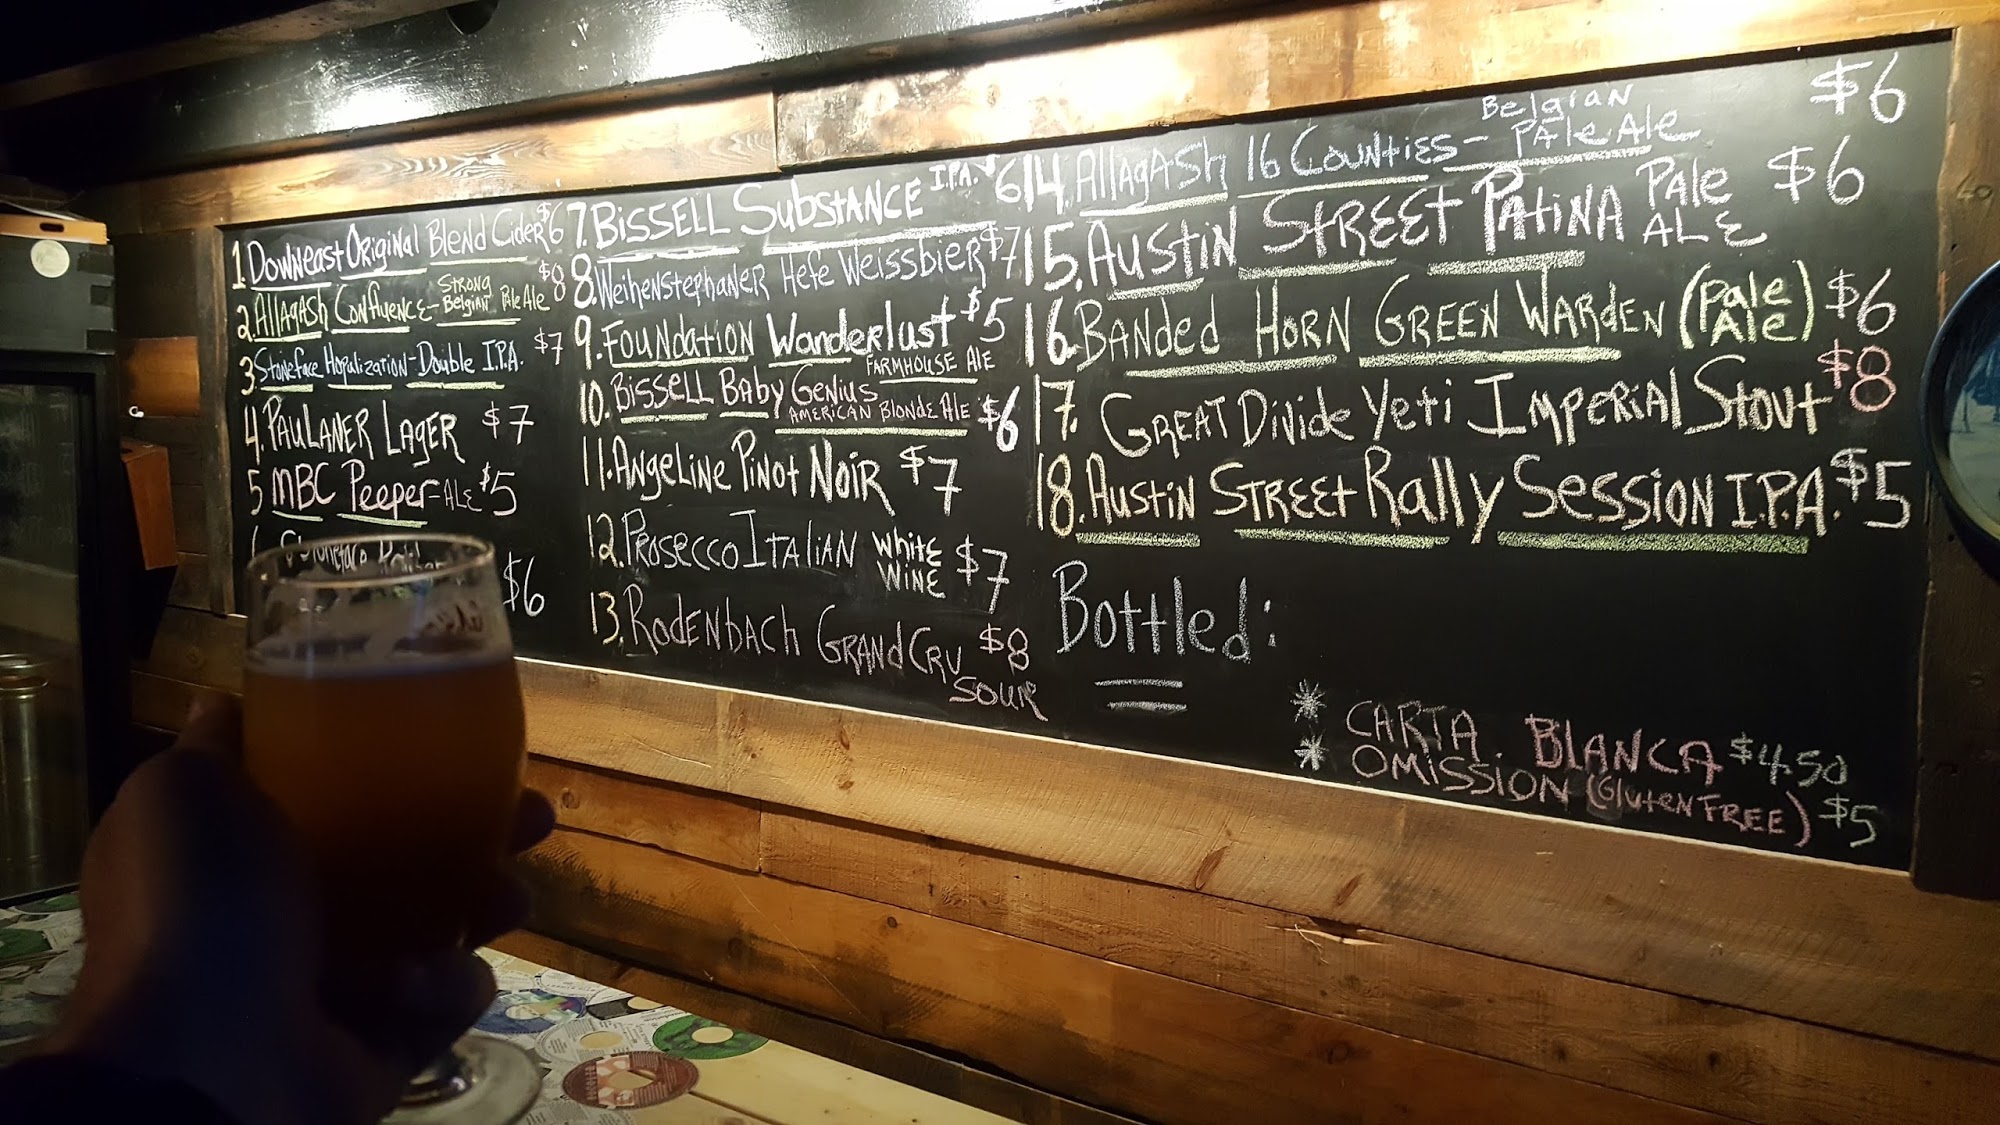 1. Downeast Original Blend Cider $6
2. Allagash Confluence - Strong Belgian Pale Ale $8
3. Stoneface Hopulization - Double I.P.A. $7
4. Paulaner Lager $7
5 MBC Peeper - Ale $5
Stoneface $6
7. Bissell Substance I.P.A. 6
8. Weihenstephaner Hefe Weissbier $7
9. Foundation Wanderlust $5
Farmhouse Ale
10. Bissell Baby Genius
American Blonde Ale $6
11. Angeline Pinot Noir $7
12. Prosecco Italian White Wine $7
13. Rodenbach Grand Cru $8
Sour
14. Allagash 16 Counties - Belgian Pale Ale $6
15. Austin Street Patina Pale Ale $6
16. Banded Horn Green Warden (Pale Ale) $6
17. Great Divide Yeti Imperial Stout $8
18. Austin Street Rally Session I.P.A. $5
Bottled:
* Carta Blanca $4.50
* Omission (Gluten Free) $5